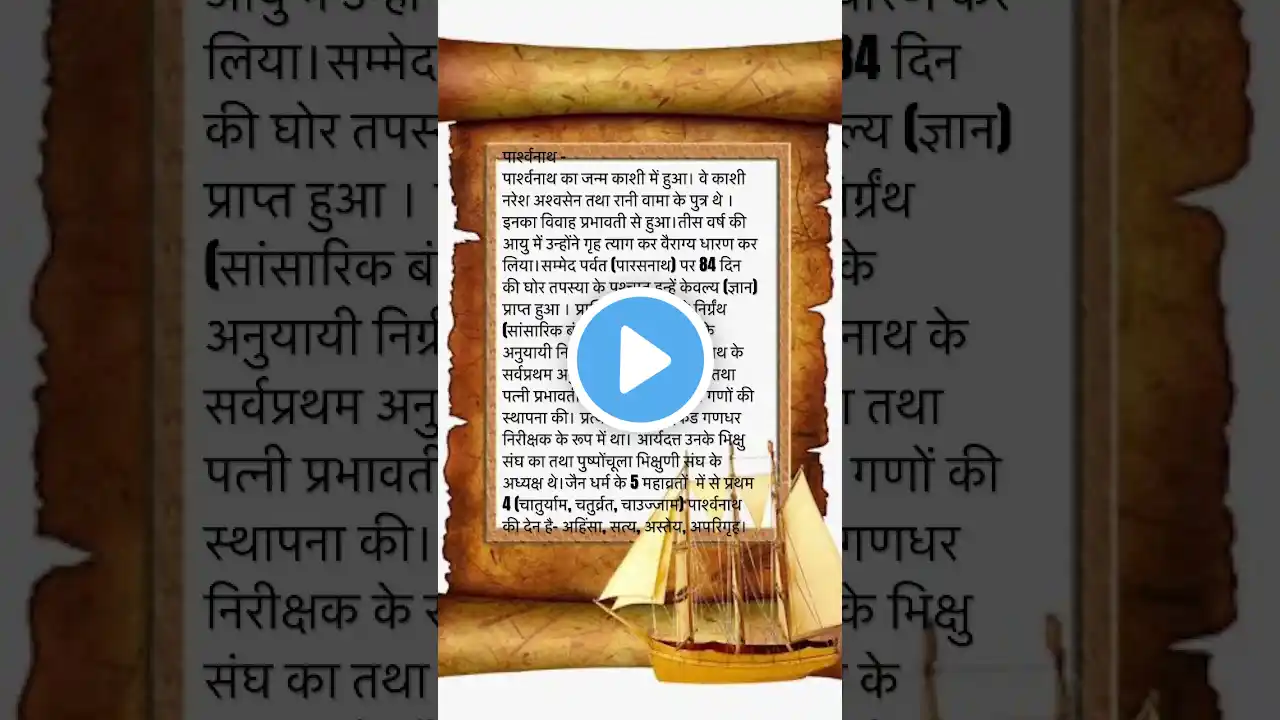 पार्श्वनाथ -
पार्श्वनाथ का जन्म काशी में हुआ। वे काशी
नरेश अश्वसेन तथा रानी वामा के पुत्र थे ।
इनका विवाह प्रभावती से हुआ।तीस वर्ष की
आयु में उन्होंने गृह त्याग कर वैराग्य धारण कर
लिया।सम्मेद पर्वत (पारसनाथ) पर 84 दिन
की घोर तपस्या के पश्चात इन्हें केवल्य (ज्ञान)
प्राप्त हुआ । निर्ग्रंथ
(सांसारिक के
अनुयायी नाथ के
सर्वप्रथम तथा
पत्नी प्रभावती गणों की
स्थापना की। गणधर
निरीक्षक के रूप में था। आर्यदत्त उनके भिक्षु
संघ का तथा पुष्पोंचूला भिक्षुणी संघ के
अध्यक्ष थे।जैन धर्म के 5 महाव्रतों में से प्रथम
4 (चातुर्याम, चतुर्व्रत, चाउज्जाम) पार्श्वनाथ
की देन है- अहिंसा, सत्य, अस्तेय, अपरिगृह।